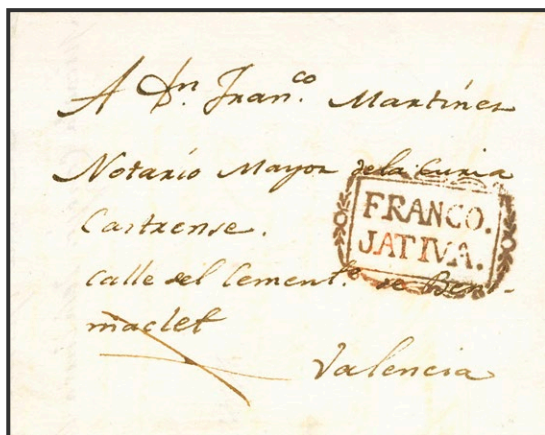 A Dn. Franco. Martínes
Notario Mayor de la Curia
Castrense.
FRANCO.
JATIVA.
Calle del Cemento. de Beni-
maclet
Valencia